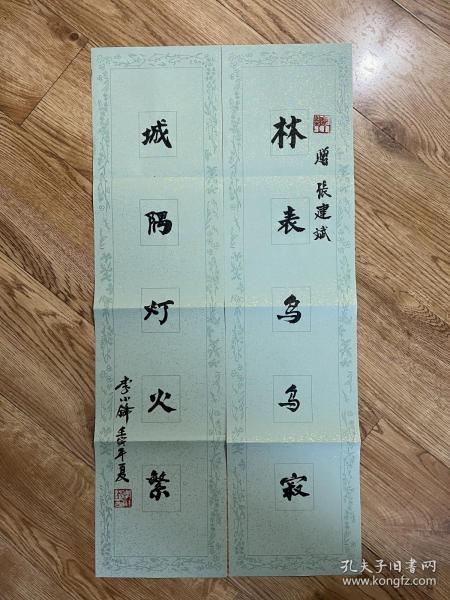 林表乌鸟寂
赠 张建斌
城隅灯火繁
李小锋 壬寅年夏
孔夫子旧书网
www.kongfz.com